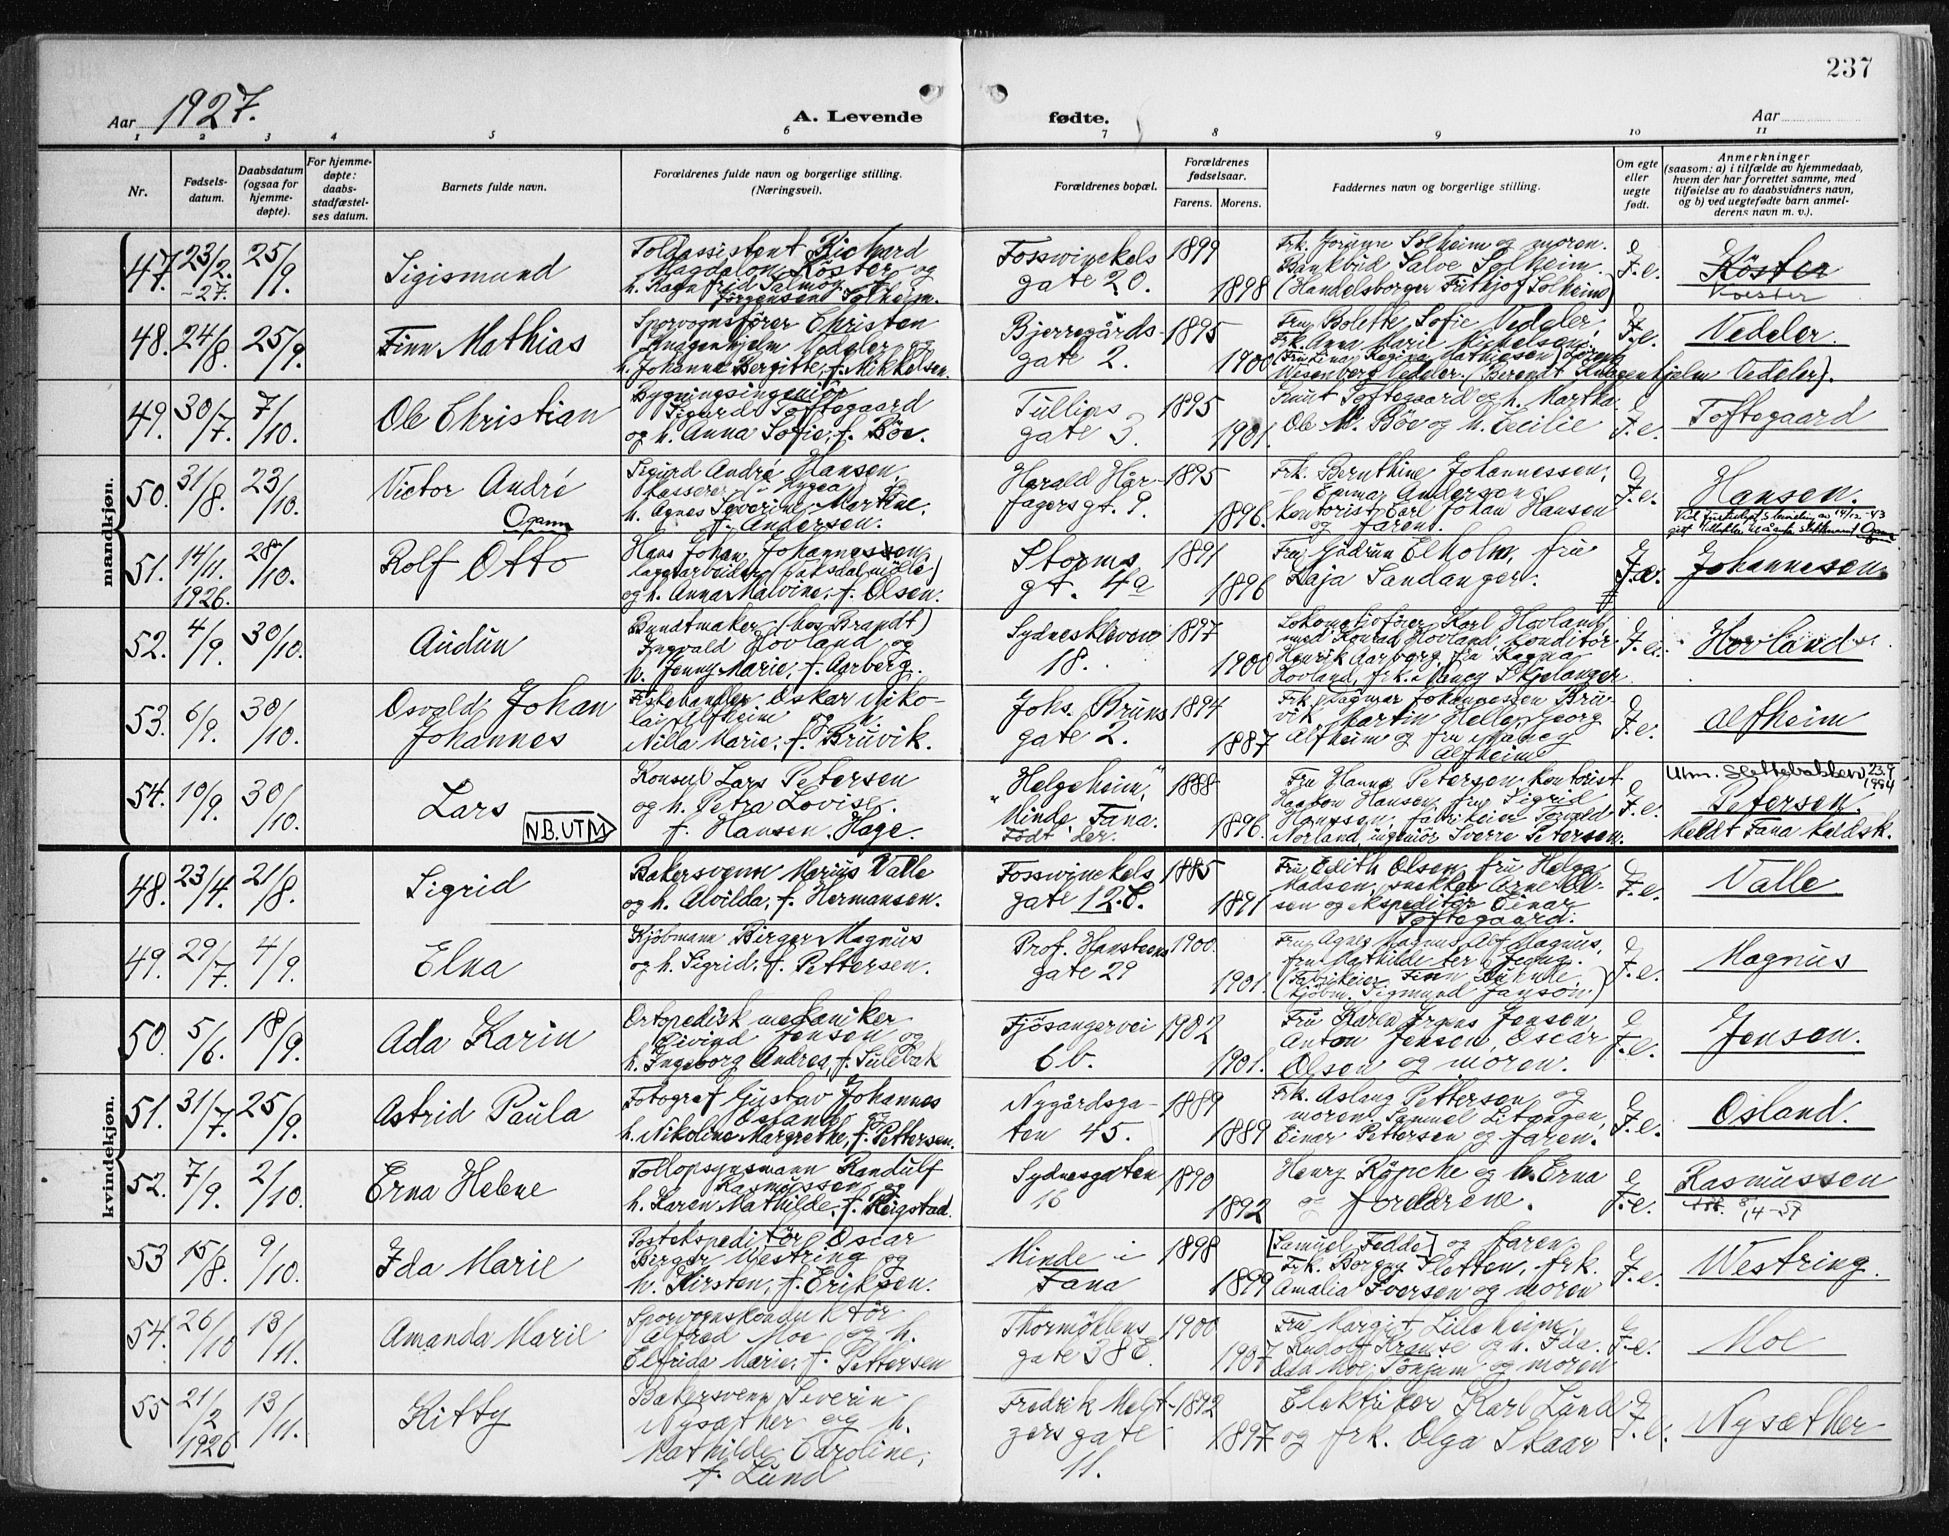 237
Aar 1927.
A. Levende
fødte.
Aar
1 2 3 4 5 6 7 8 9 10 11
Nr.
Fødsels-
datum.
Daabsdatum
(ogsaa for
hjemme-
døpte).
For hjemme-
døpte:
daabs-
stadfæstel-
ses datum.
Barnets fulde navn.
Forældrenes fulde navn og borgerlige stilling.
(Næringsvei).
Forældrenes bopæl.
Forældrenes
fødselsaar.
Farens.
Morens.
Faddernes navn og borgerlige stilling.
Om egte
eller
uegte
født.
Anmerkninger
(saasom: a) i tilfælde av hjemmedaab,
hvem der har forrettet samme, med
tilføielse av to daabsvidners navn,
og b) ved uegtefødte barn anmel-
derens navn m. v.).
mandkjøn.
47. 23/2.
-27.
25/9.
Sigismund
Toldassistent Richard
Magdalon Köster og
h. Ragnfrid Salmøg
Jørgensen Solheim.
Fosswinckels
gate 20.
1899
1898
Frk. Jorunn Solheim og moren.
Bankbud Salve Solheim.
(Handelsborger Frithjof Solheim)
F.e.
Köster
Koester
48. 24/8. 25/9.
Finn Mathias
Sporvognsfører Christen
Knagenhjelm Vedeler og
h. Johanne Bergitte, f. Mikkelsen.
Bjerregårds-
gate 2.
1895
1900
Fru Bolette Sofie Vedeler,
Frk. Anna Marie Mickelsen.
(Fru Lina Regina Mathiesen) Lorentz
Wesenberg Vedeler. (Berendt Knagenhjelm Vedeler).
F.e.
Vedeler.
49. 30/7. 7/10.
Ole Christian
Bygningsingeniør
Sigurd Toftegaard
og h. Anna Sofie, f. Böe.
Tullins
gate 3.
1895
1901.
Knut Toftegaard og h. Martha.
Ole M. Böe og h. Cecilie
F.e.
Toftegaard
50. 31/8. 23/10.
Victor André
Sigurd André Hansen
kasserer i Hygea og
h. Agnes Severine Martine,
f. Andersen.
Harald Hår-
fagersgt. 9.
1895
1896.
Frk. Bernthine Johannessen,
Gunnar Anderson,
kontorist Carl Johan Hansen
og faren.
F.e.
Hansen.
51. 14/11.
1926.
28/10.
Ogann
Rolf Otto
Hans Johan Johannessen,
lagerarbeider
og h. Anna Malvine, f. Olsen.
Storms
gt. 4a
1891
1896
Fru Gudrun Elholm, fru
Kaja Sandanger.
F.e.
Ogann
Johannesen
52. 4/9. 30/10.
Audun
Buntmaker (hos Brandt)
Ingvald Hovland og
h. Jenny Marie, f. Aarberg.
Sydneskleven
18.
1897
1900
Lokomotivfører Karl Hovland
med Konrad Hovland, konditor
Henrik Aarberg, fru Ragna
Hovland, frk. Nancy Skjelanger
F.e.
Hovland
53. 6/9. 30/10.
Osvald Johan
Johannes
Fiskehandler Oskar Niko-
lai Alfheim og h.
Nilla Marie, f. Bruvik.
Johs. Bruns
gate 2.
1894
1887
Frk. Dagmar Johannessen Bru-
vik, Martin Helle, Georg
Alfheim og fru Nancy
Alfheim
F.e.
Alfheim
54. 10/9. 30/10.
Lars
N.B. UTM
Konsul Lars Petersen
og h. Petra Lovise,
f. Hansen. Hage.
"Helgeheim,"
Minde, Fana.
Født der.
1888
1896.
Fru Hanna Petersen, kontorist
Haakon Hansen, fru Sigrid
Hanssen, fabrikeier Torvald
Norland, ingeniör Sverre Petersen.
F.e.
Utm. Slettebakken 23.9
1994
Petersen.
Meldt Fana kaldsk.
kvindekjøn.
48. 23/4. 21/8.
Sigrid
Bakersvenn Marius Valle
og h. Alvilda, f. Hermansen.
Fosswinckels
gate 12.b.
1885
1891
Fru Edith Olsen, fru Helga
Madsen, snekker Arne Ol-
sen og ekspeditör Einar
Toftegaard.
F.e.
Valle
49. 29/7. 4/9.
Elna
Kjöbmann Birger Magnus
og h. Sigrid, f. Pettersen.
Prof. Hansteens
gate 29
1900.
1901.
Fru Agnes Magnus, Alf Magnus,
fru Mathilde ter Jegug.
(Fabrikeier Finn Buhnde.
Kjöbm. Sigmund Janson)
F.e.
Magnus
50. 5/6. 18/9.
Ada Karin
Ortopedisk mekaniker
Eivind Jensen og
h. Ingeborg Andrea, f. Tulebak
Fjösangervei
6b.
1902
1901.
Fru Karen Jensen,
Anton Jensen, Oscar
Olsen og moren.
F.e.
Jensen.
51. 31/7. 25/9.
Astrid Paula
Fotograf Gustav Johannes
Osland og
h. Nikoline Margrethe, f. Pettersen.
Nygårdsga-
ten 45.
1889
1889
Frk. Aslaug Pettersen og
moren. Samuel Litangen,
Einar Pettersen og faren.
F.e.
Osland.
52. 7/9. 2/10.
Erna Helene
Tollopsynsmann Randulf
Rasmussen og
h. Karen Mathilde, f. Reigstad.
Sydnesgaten
16
1890
1892
Henry Röpcke og h. Erna
og foreldrene.
F.e.
Rasmussen
8/4-57
53 15/8. 9/10.
Ida Marie
Postekspeditör Oscar
Berger Westring og
h. Kirsten, f. Eriksen.
Minde i
Fana
1898
1899
[Samuel Fedde] og faren.
Frk. Borgny Sletten, frk.
Amalia Iversen og moren
F.e.
Westring.
54. 26/10 13/11.
Amanda Marie
Sporvognskonduktör
Alfred Moe og h.
Elfrida Marie, f. Pettersen
Thormöhlens
gate 38E.
1900
1907
Fru Margit Lilleheim,
Rudolf Krause og h. Ida.
Ada Moe, Tönjum og moren
F.e.
Moe
55 21/2
1926
13/11.
Kitty
Bakersvenn Severin
Nysæther og h.
Mathilde Caroline,
f. Lund
Fredrik Melt-
zers gate
11.
1892
1897
Elektriker Karl Lund
og frk. Olga Skaar
F.e.
Nysæther